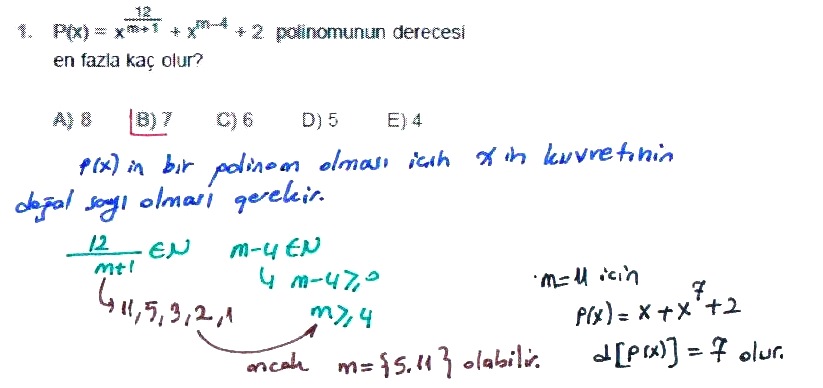 1. P(x) = x^(12/(m+1)) + x^(m-4) + 2 polinomunun derecesi
en fazla kaç olur?
A) 8 B) 7 C) 6 D) 5 E) 4
P(x) in bir polinom olması için x in kuvvetinin
doğal sayı olması gerekir.
12/(m+1) ∈ N m-4 ∈ N
↳ m-4 ≥ 0
↳ 11, 5, 3, 2, 1 m ≥ 4
ancak m = {5, 11} olabilir.
m = 11 için
P(x) = x + x^7 + 2
d[P(x)] = 7 olur.